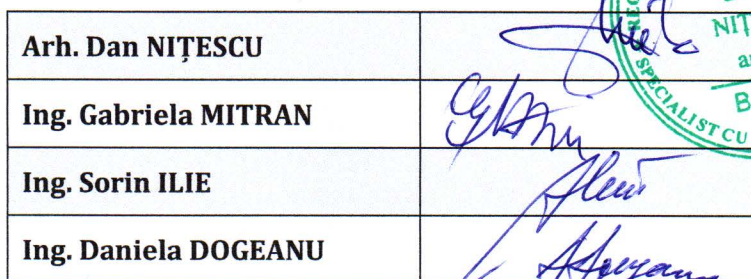 Arh. Dan NIȚESCU
Ing. Gabriela MITRAN
Ing. Sorin ILIE
Ing. Daniela DOGEANU
SPECIALIST CU